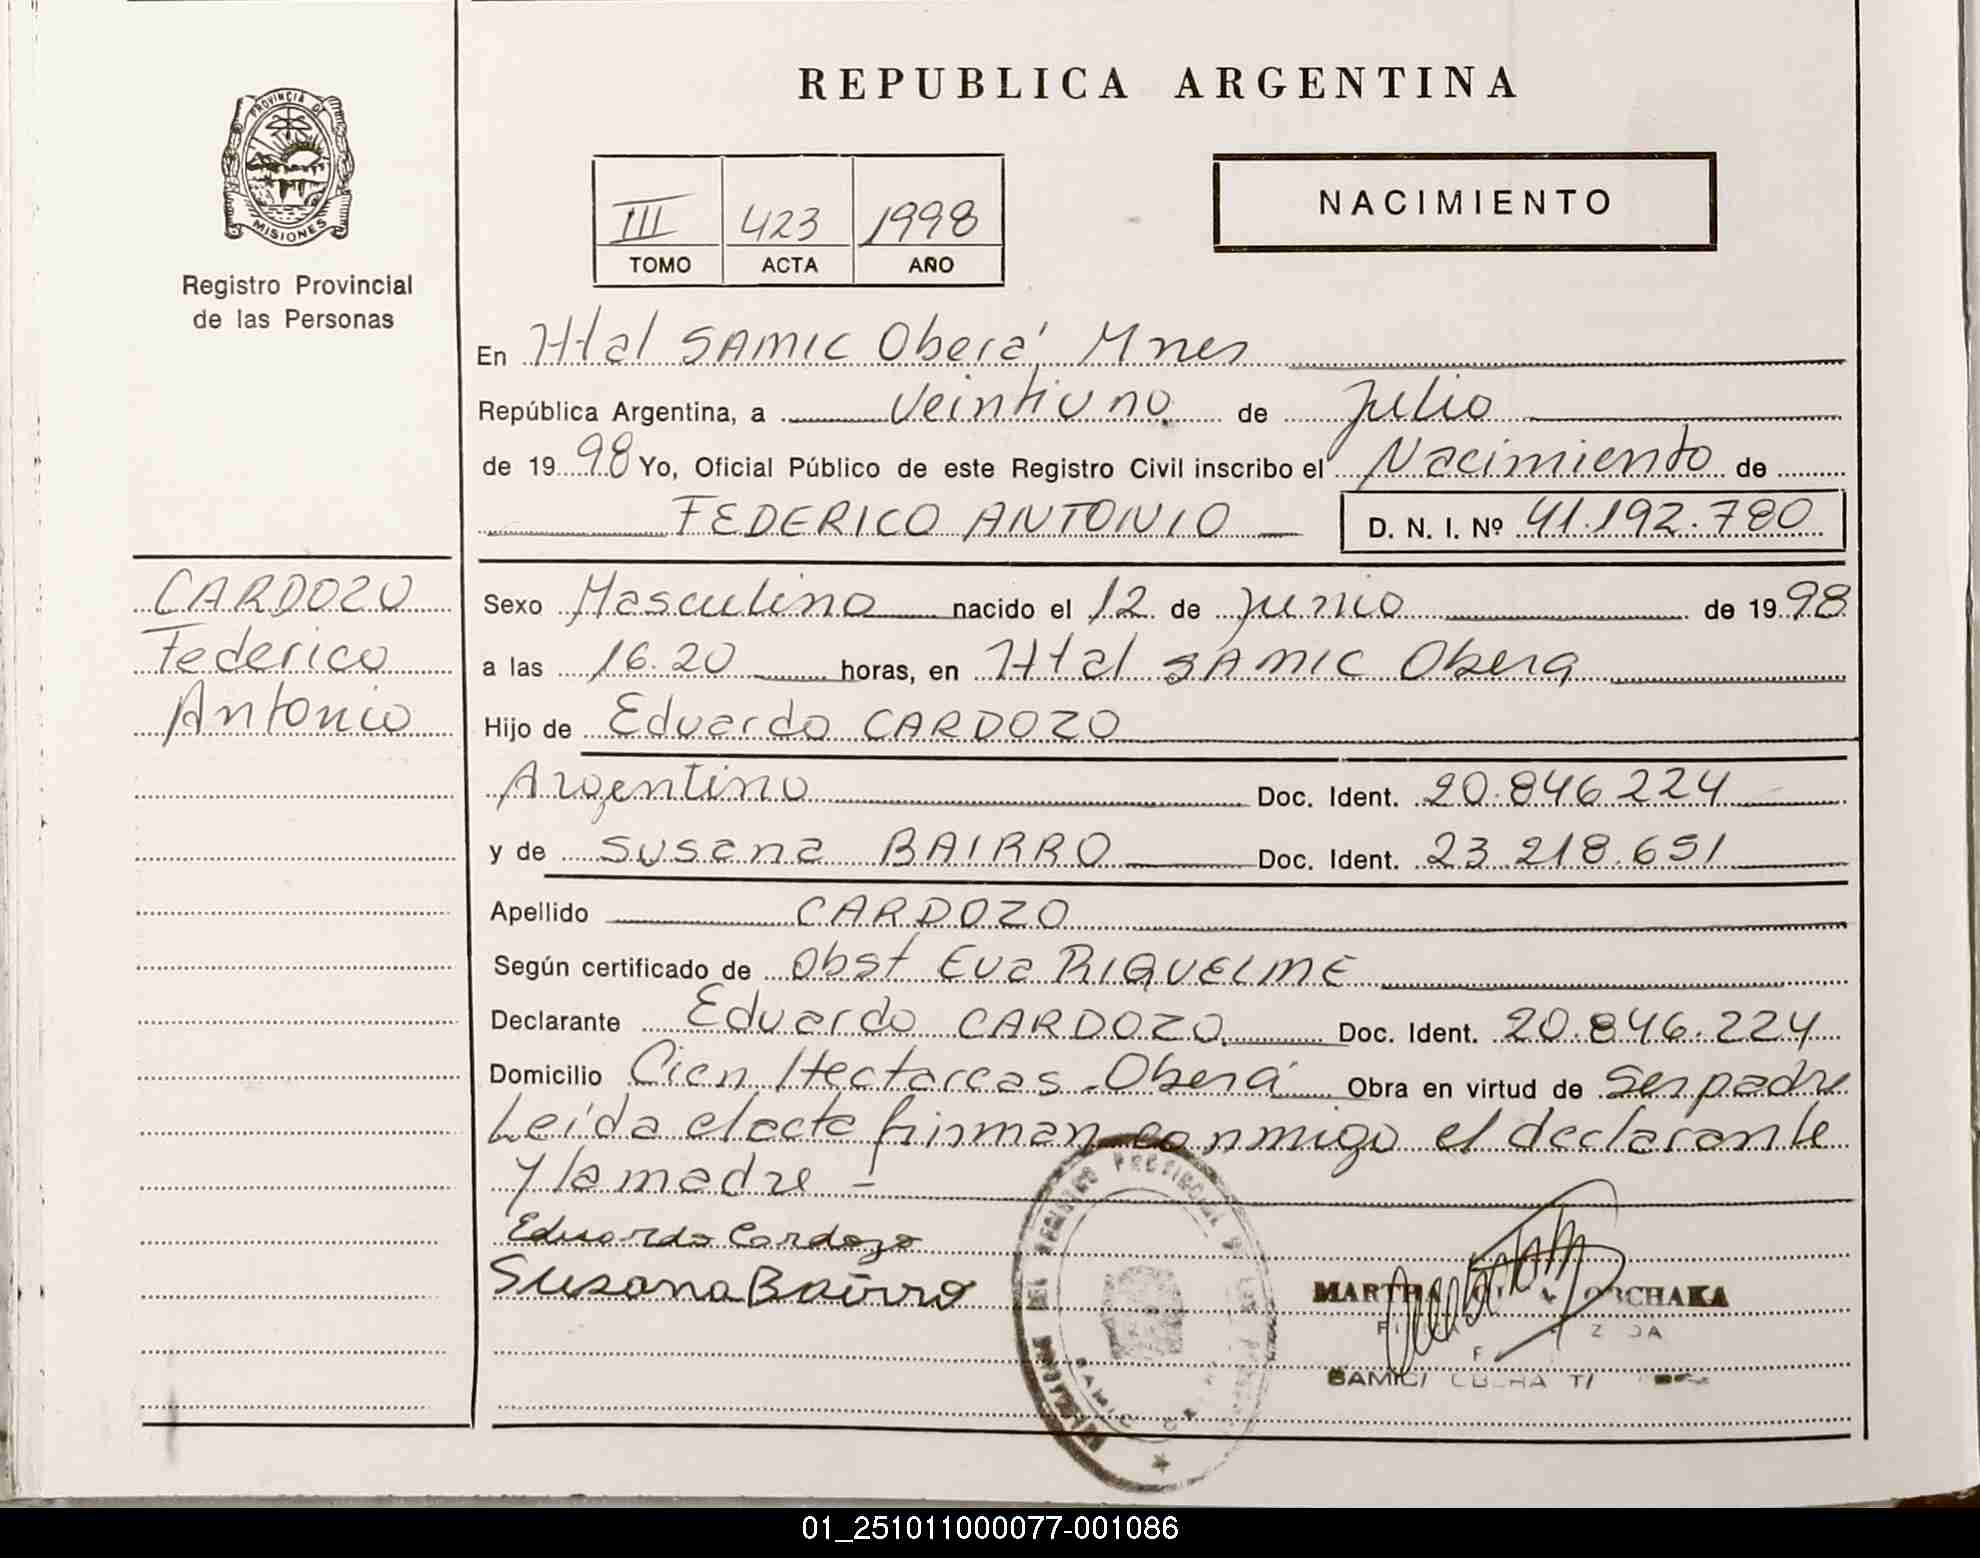 REPUBLICA ARGENTINA
PROVINCIA DE
MISIONES
Registro Provincial
de las Personas
III 423 1998
TOMO ACTA AÑO
NACIMIENTO
En Htal SAMIC Oberá Mnes
República Argentina, a veintiuno de Julio
de 1998 Yo, Oficial Público de este Registro Civil inscribo el Nacimiento de
FEDERICO ANTONIO D. N. I. Nº 41.192.780
CARDOZO
Federico
Antonio
Sexo Masculino nacido el 12 de junio de 1998
a las 16.20 horas, en Htal SAMIC Obera
Hijo de Eduardo CARDOZO
Argentino Doc. Ident. 20.846.224
y de Susana BAIRRO Doc. Ident. 23.218.651
Apellido CARDOZO
Según certificado de Obst Eva RIQUELME
Declarante Eduardo CARDOZO Doc. Ident. 20.846.224
Domicilio Cien Hectareas - Oberá Obra en virtud de ser padre
Leída el acta firman conmigo el declarante
y la madre -
Eduardo Cardozo
Susana Bairro
REGISTRO PROVINCIAL
MARTHA
SAMIC/
01_251011000077-001086